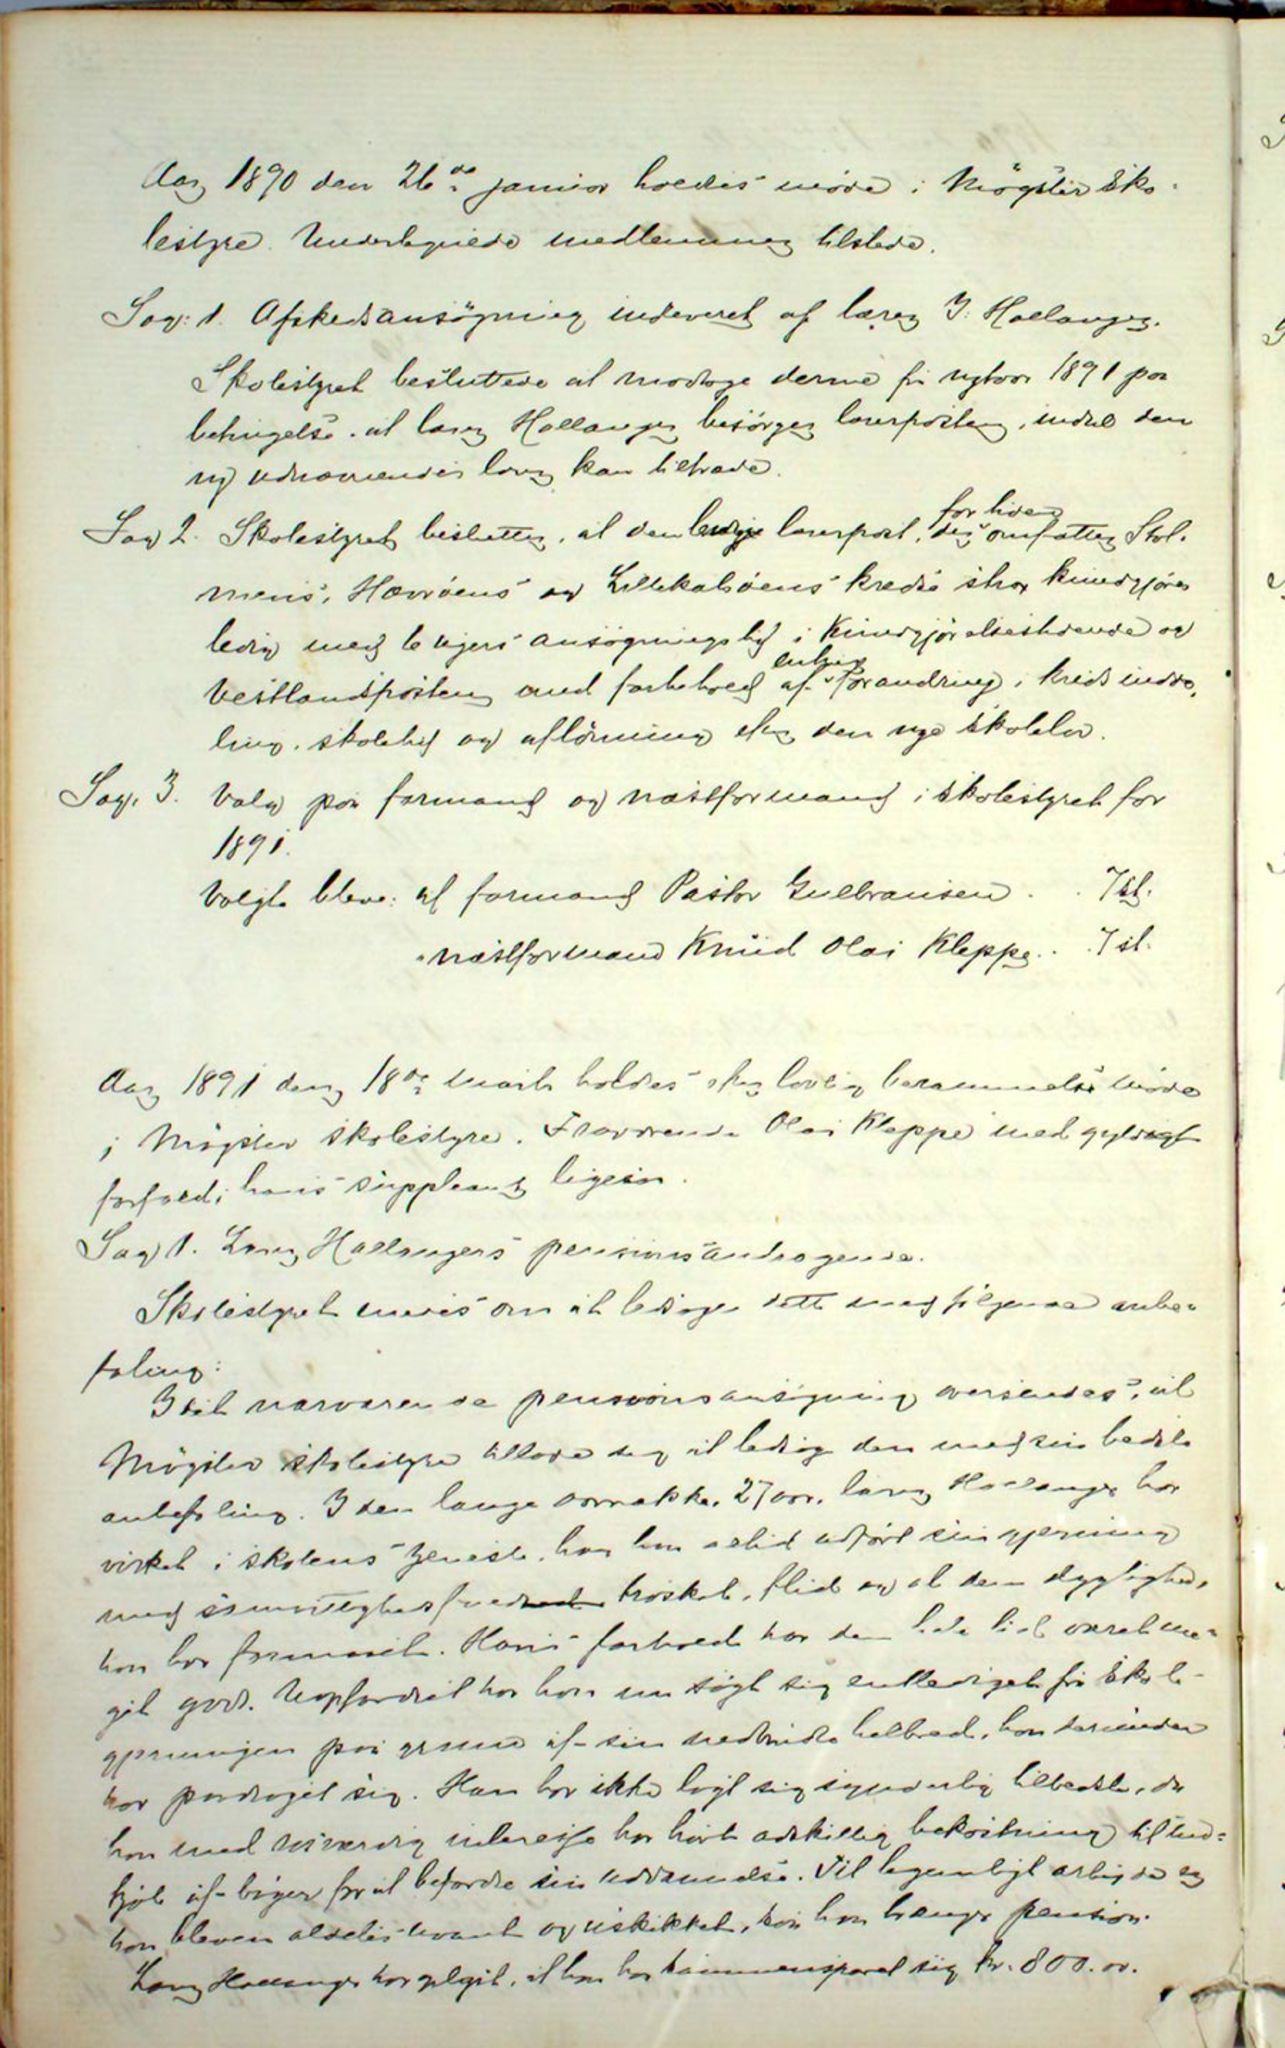 Aar 1890 den 26de januar holdtes møde i Møgster sko-
lestyre. Undertegnede medlemmer tilstede.
Sag: 1. Afskedsansøgning indleveret af lærer J. Hallanger.
Skolestyret besluttede at modtage denne fra nytaar 1891 paa
betingelse at lærer Hallanger besørger lærerposten, indtil den
ny udnævnendes lærer kan tiltræde.
Sag 2. Skolestyret beslutter, at den ledige lærerpost, der for tiden omfatter Stol-
mens, Hævrøens og Lillekalsøens kredse strax kundgjøres
ledig med 6 ugers ansøgningstid i Kundgjørelsestidende og
Vestlandsposten med forbehold af enhver forandring i kredsindde-
ling, skoletid og aflønning efter den nye skolelov.
Sag. 3. Valg paa formand og næstformand i skolestyret for
1891.
Valgt bleve: til formand Pastor Gulbransen . . 7 st.
" næstformand Knud Olai Kleppe . . 7 st.
Aar 1891 den 18de marts holdtes efter lovlig berammelse møde
i Møgster skolestyre. Fraværende Olai Kleppe med gyldigt
forfald; hans suppleant ligesaa.
Sag 1. Lærer Hallangers pensionsandragende.
Skolestyret enedes om at ledsage dette med følgende anbe-
faling:
Idet nærværende pensionsansøgning oversendes, vil
Møgster skolestyre tillade sig at ledsage den med sin bedste
anbefaling. I den lange aarrække, 27 aar, lærer Hallanger har
virket i skolens tjeneste, har han altid udført sin gjerning
med samvittighedsfuld troskab, flid og al den dygtighed,
han har formaaet. Hans forhold har den hele tid været me-
get godt. Uopfordret har han nu søgt sig entlediget fra skole-
gjerningen paa grund af sin nedbrudte helbred, han derunder
har paadraget sig. Han har ikke lagt sig synderlig tilbedste, da
han med interesse har havt adskillig bekostning til ind-
kjøb af bøger for at befordre sin uddannelse. Til legemligt arbeide er
han bleven aldeles uvant og uskikket, saa han trænger pension.
Lærer Hallanger har opgit, at han har sammensparet sig kr. 800.00.